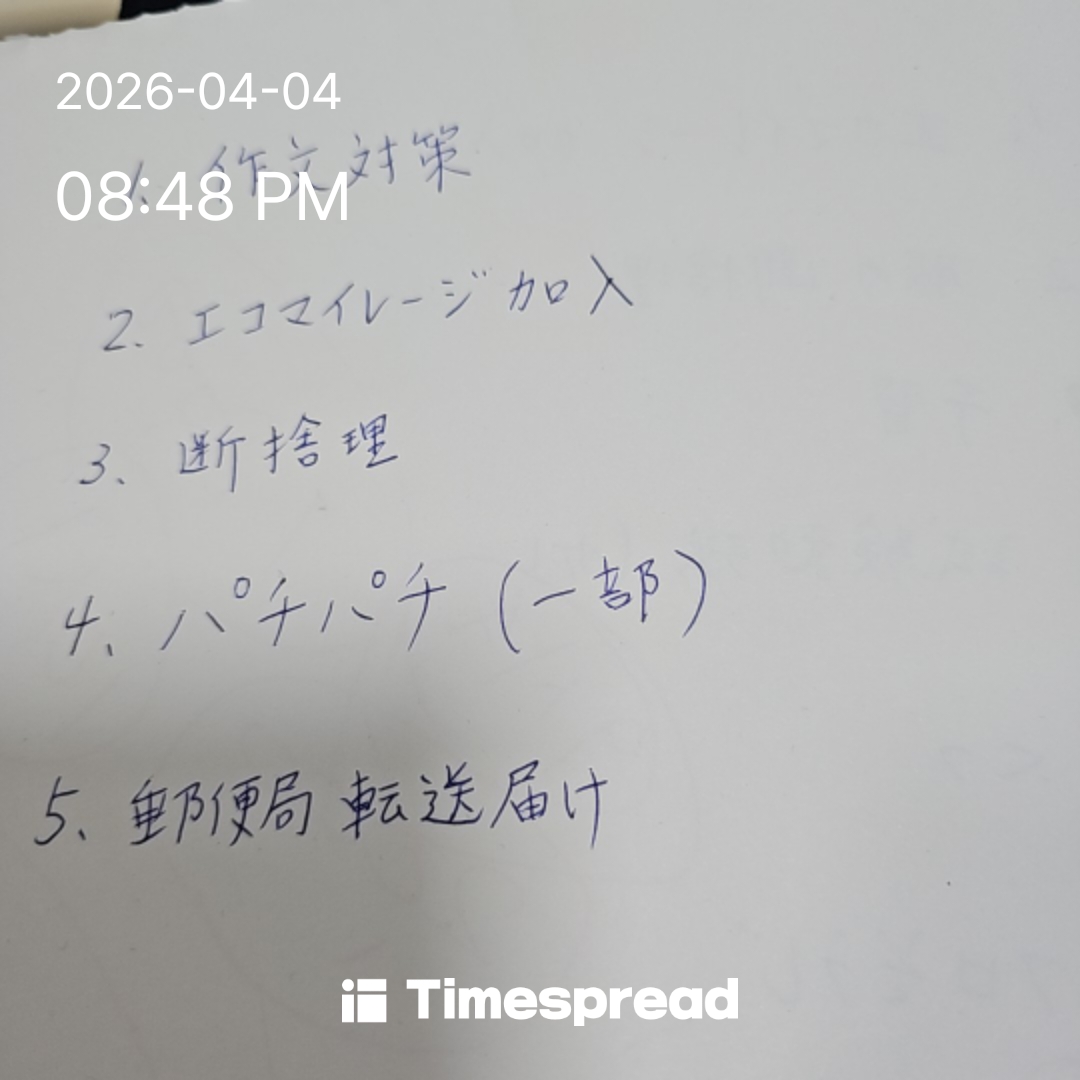 2026-04-04
1. 作文対策
08:48 PM
2. エコマイレージ加入
3. 断捨理
4. パチパチ (一部)
5. 郵便局 転送届け
Timespread